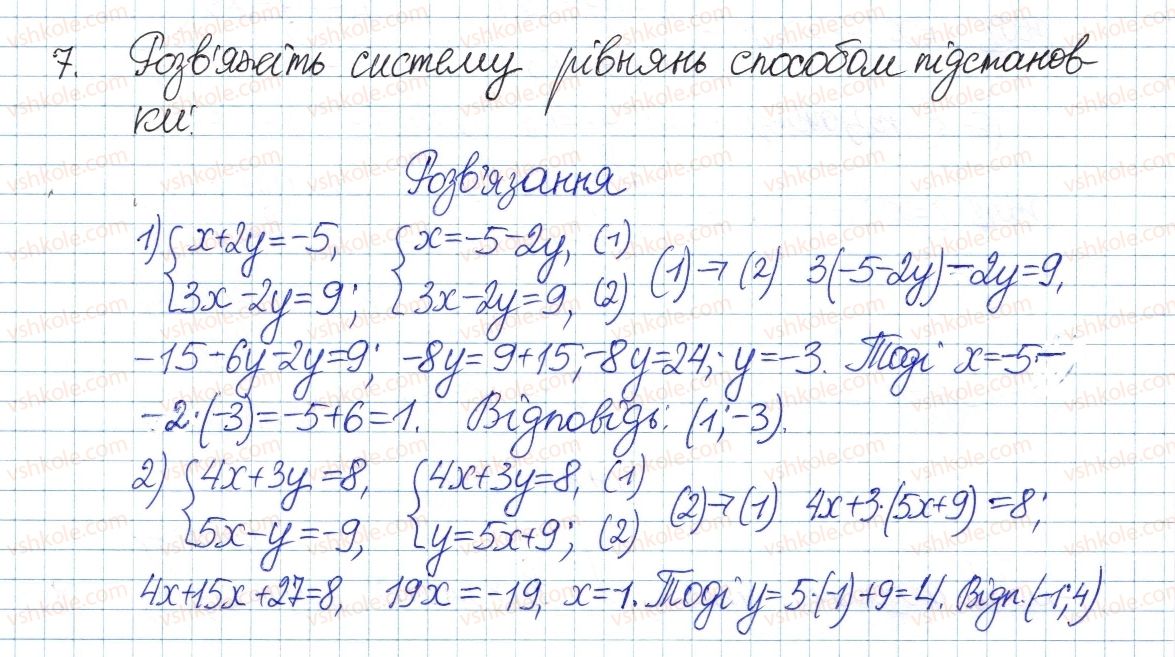 7. Розв'яжіть систему рівнянь способом підстанов-
ки:
Розв'язання
1) {x+2y=-5, {x=-5-2y, (1)
{3x-2y=9; {3x-2y=9, (2) (1)→(2) 3(-5-2y)-2y=9,
-15-6y-2y=9; -8y=9+15; -8y=24; y=-3. Тоді x=-5-
-2·(-3)=-5+6=1. Відповідь: (1;-3).
2) {4x+3y=8, {4x+3y=8, (1)
{5x-y=-9, {y=5x+9; (2) (2)→(1) 4x+3·(5x+9)=8;
4x+15x+27=8, 19x=-19, x=-1. Тоді y=5·(-1)+9=4. Відп. (-1;4)